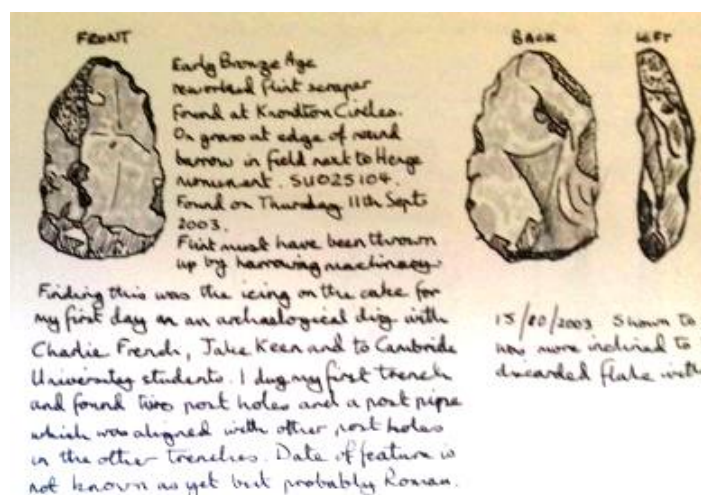 FRONT
Early Bronze Age
reworked flint scraper
found at Knowlton Circles.
On grass at edge of round
barrow in field next to Henge
monument. SU025104.
Found on Thursday 11th Sept
2003.
Flint must have been thrown
up by harrowing machinery.
Finding this was the icing on the cake for
my first day on an archaelogical dig with
Charlie French, Jake Keen and to Cambride
University students. I dug my first trench
and found two post holes and a post pipe
which was aligned with other post holes
in the other trenches. Date of feature is
not known as yet but probably Roman.
BACK
LEFT
15/10/2003 Shown to
now more inclined to
discarded flake with